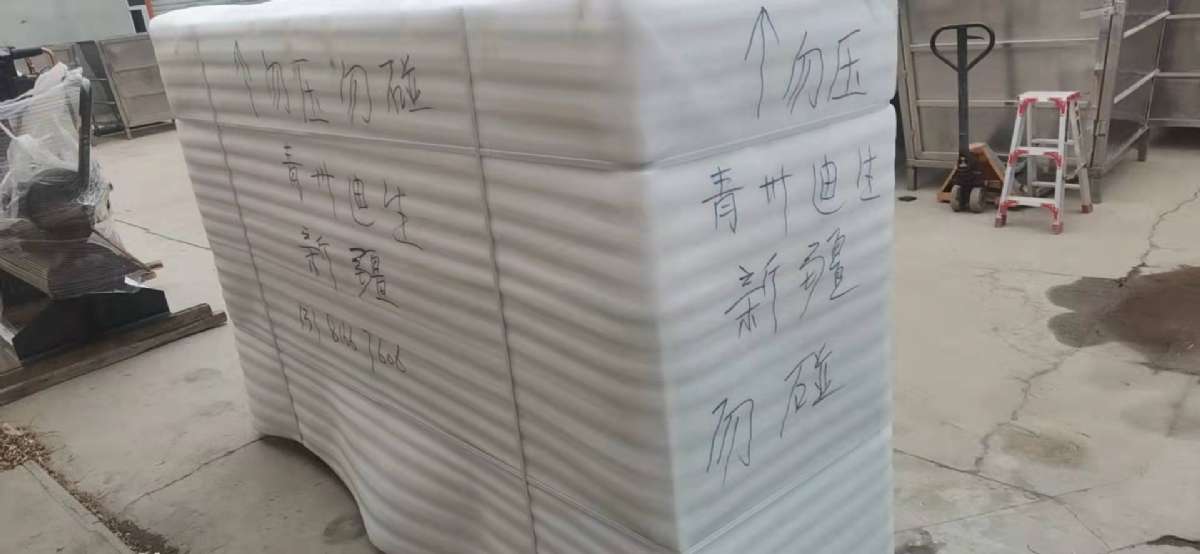 ↑勿压勿碰
青州迪生
新疆
↑勿压
青州迪生
新疆
勿碰